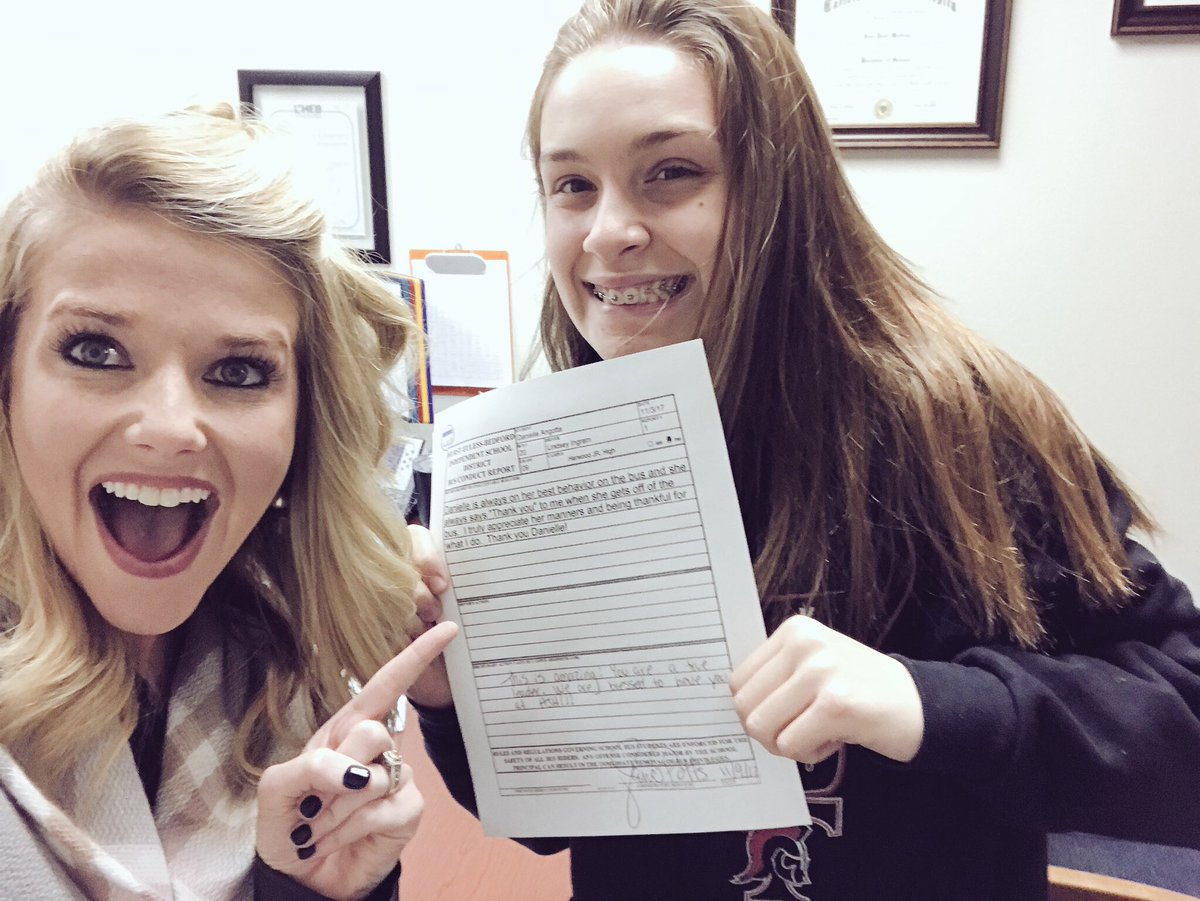 HEB
HURST-EULESS-BEDFORD
INDEPENDENT SCHOOL
DISTRICT
BUS CONDUCT REPORT
Danielle Angotta
11/3/17
20
Lindsey Ingram
1
09
Harwood JR. High
Danielle is always on her best behavior on the bus and she
always says "Thank you" to me when she gets off of the
bus. I truly appreciate her manners and being thankful for
what I do. Thank you Danielle!
This is amazing! You are a true
leader, we are blessed to have you
at
RULES AND REGULATIONS GOVERNING SCHOOL BUS STUDENTS ARE ENFORCED FOR THE
SAFETY OF ALL BUS RIDERS. ANY OFFENSE CONSIDERED MAJOR BY THE SCHOOL
PRINCIPAL CAN RESULT IN THE IMMEDIATE REMOVAL OF BUS PRIVILEGES.
11/9/17